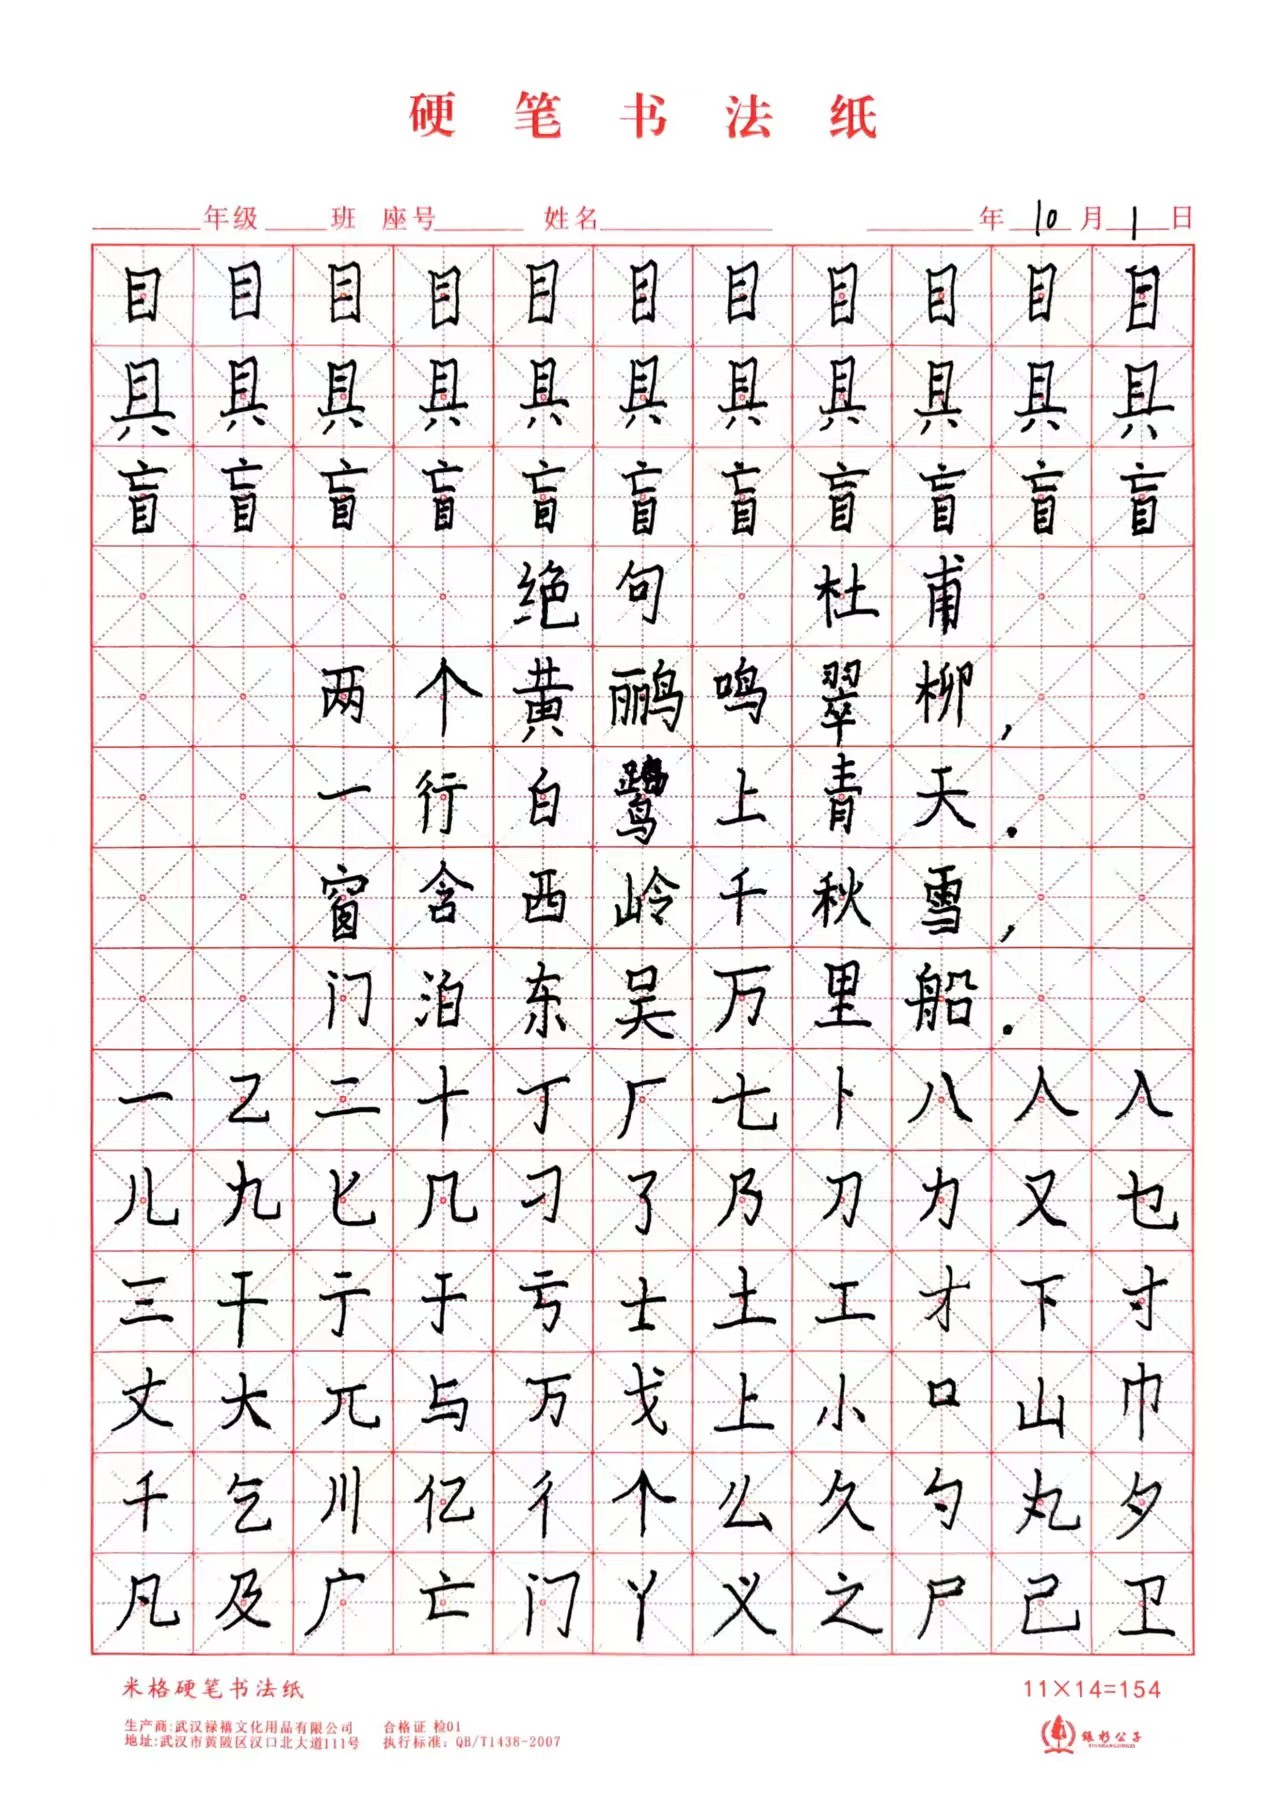 硬笔书法纸
年级 班 座号 姓名 年 10 月 1 日
目目目目目目目目目目目
具具具具具具具具具具具
盲盲盲盲盲盲盲盲盲盲盲
绝句 杜甫
两个黄鹂鸣翠柳,
一行白鹭上青天.
窗含西岭千秋雪,
门泊东吴万里船.
一乙二十丁厂七卜八人入
儿九匕几刁了乃刀力又乜
三干亍于亏士土工才下寸
丈大兀与万弋上小口山巾
千乞川亿彳个么久勺丸夕
凡及广亡门丫义之尸己卫
米格硬笔书法纸 11×14=154
生产商:武汉禄禧文化用品有限公司 合格证 检01
地址:武汉市黄陂区汉口北大道111号 执行标准: QB/T1438-2007
银杉公子